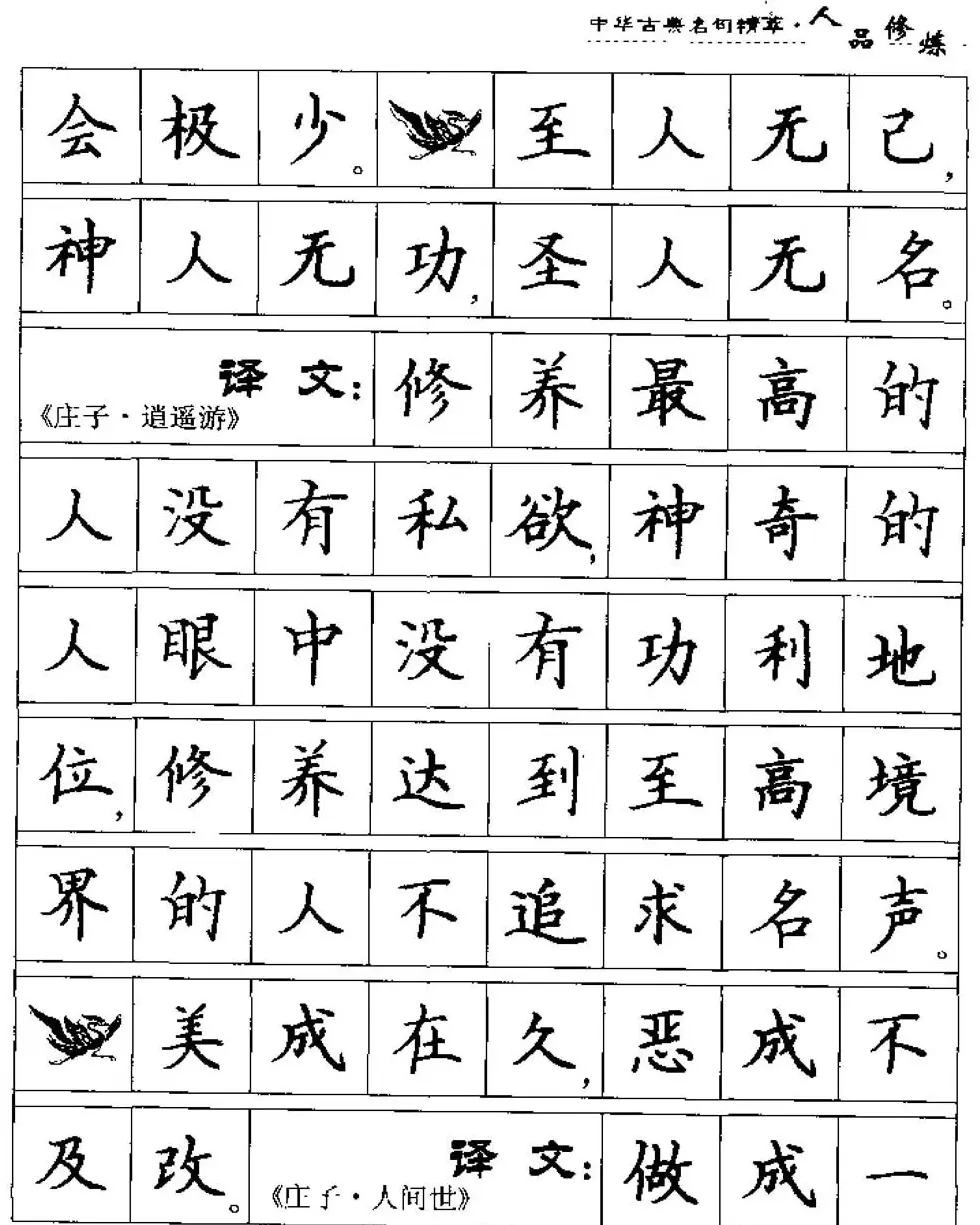 中华古典名句精萃·人品修炼
会极少。至人无己，
神人无功，圣人无名。
译文：修养最高的
《庄子·逍遥游》
人没有私欲，神奇的
人眼中没有功利地
位，修养达到至高境
界的人不追求名声。
美成在久，恶成不
及改。译文：做成一
《庄子·人间世》